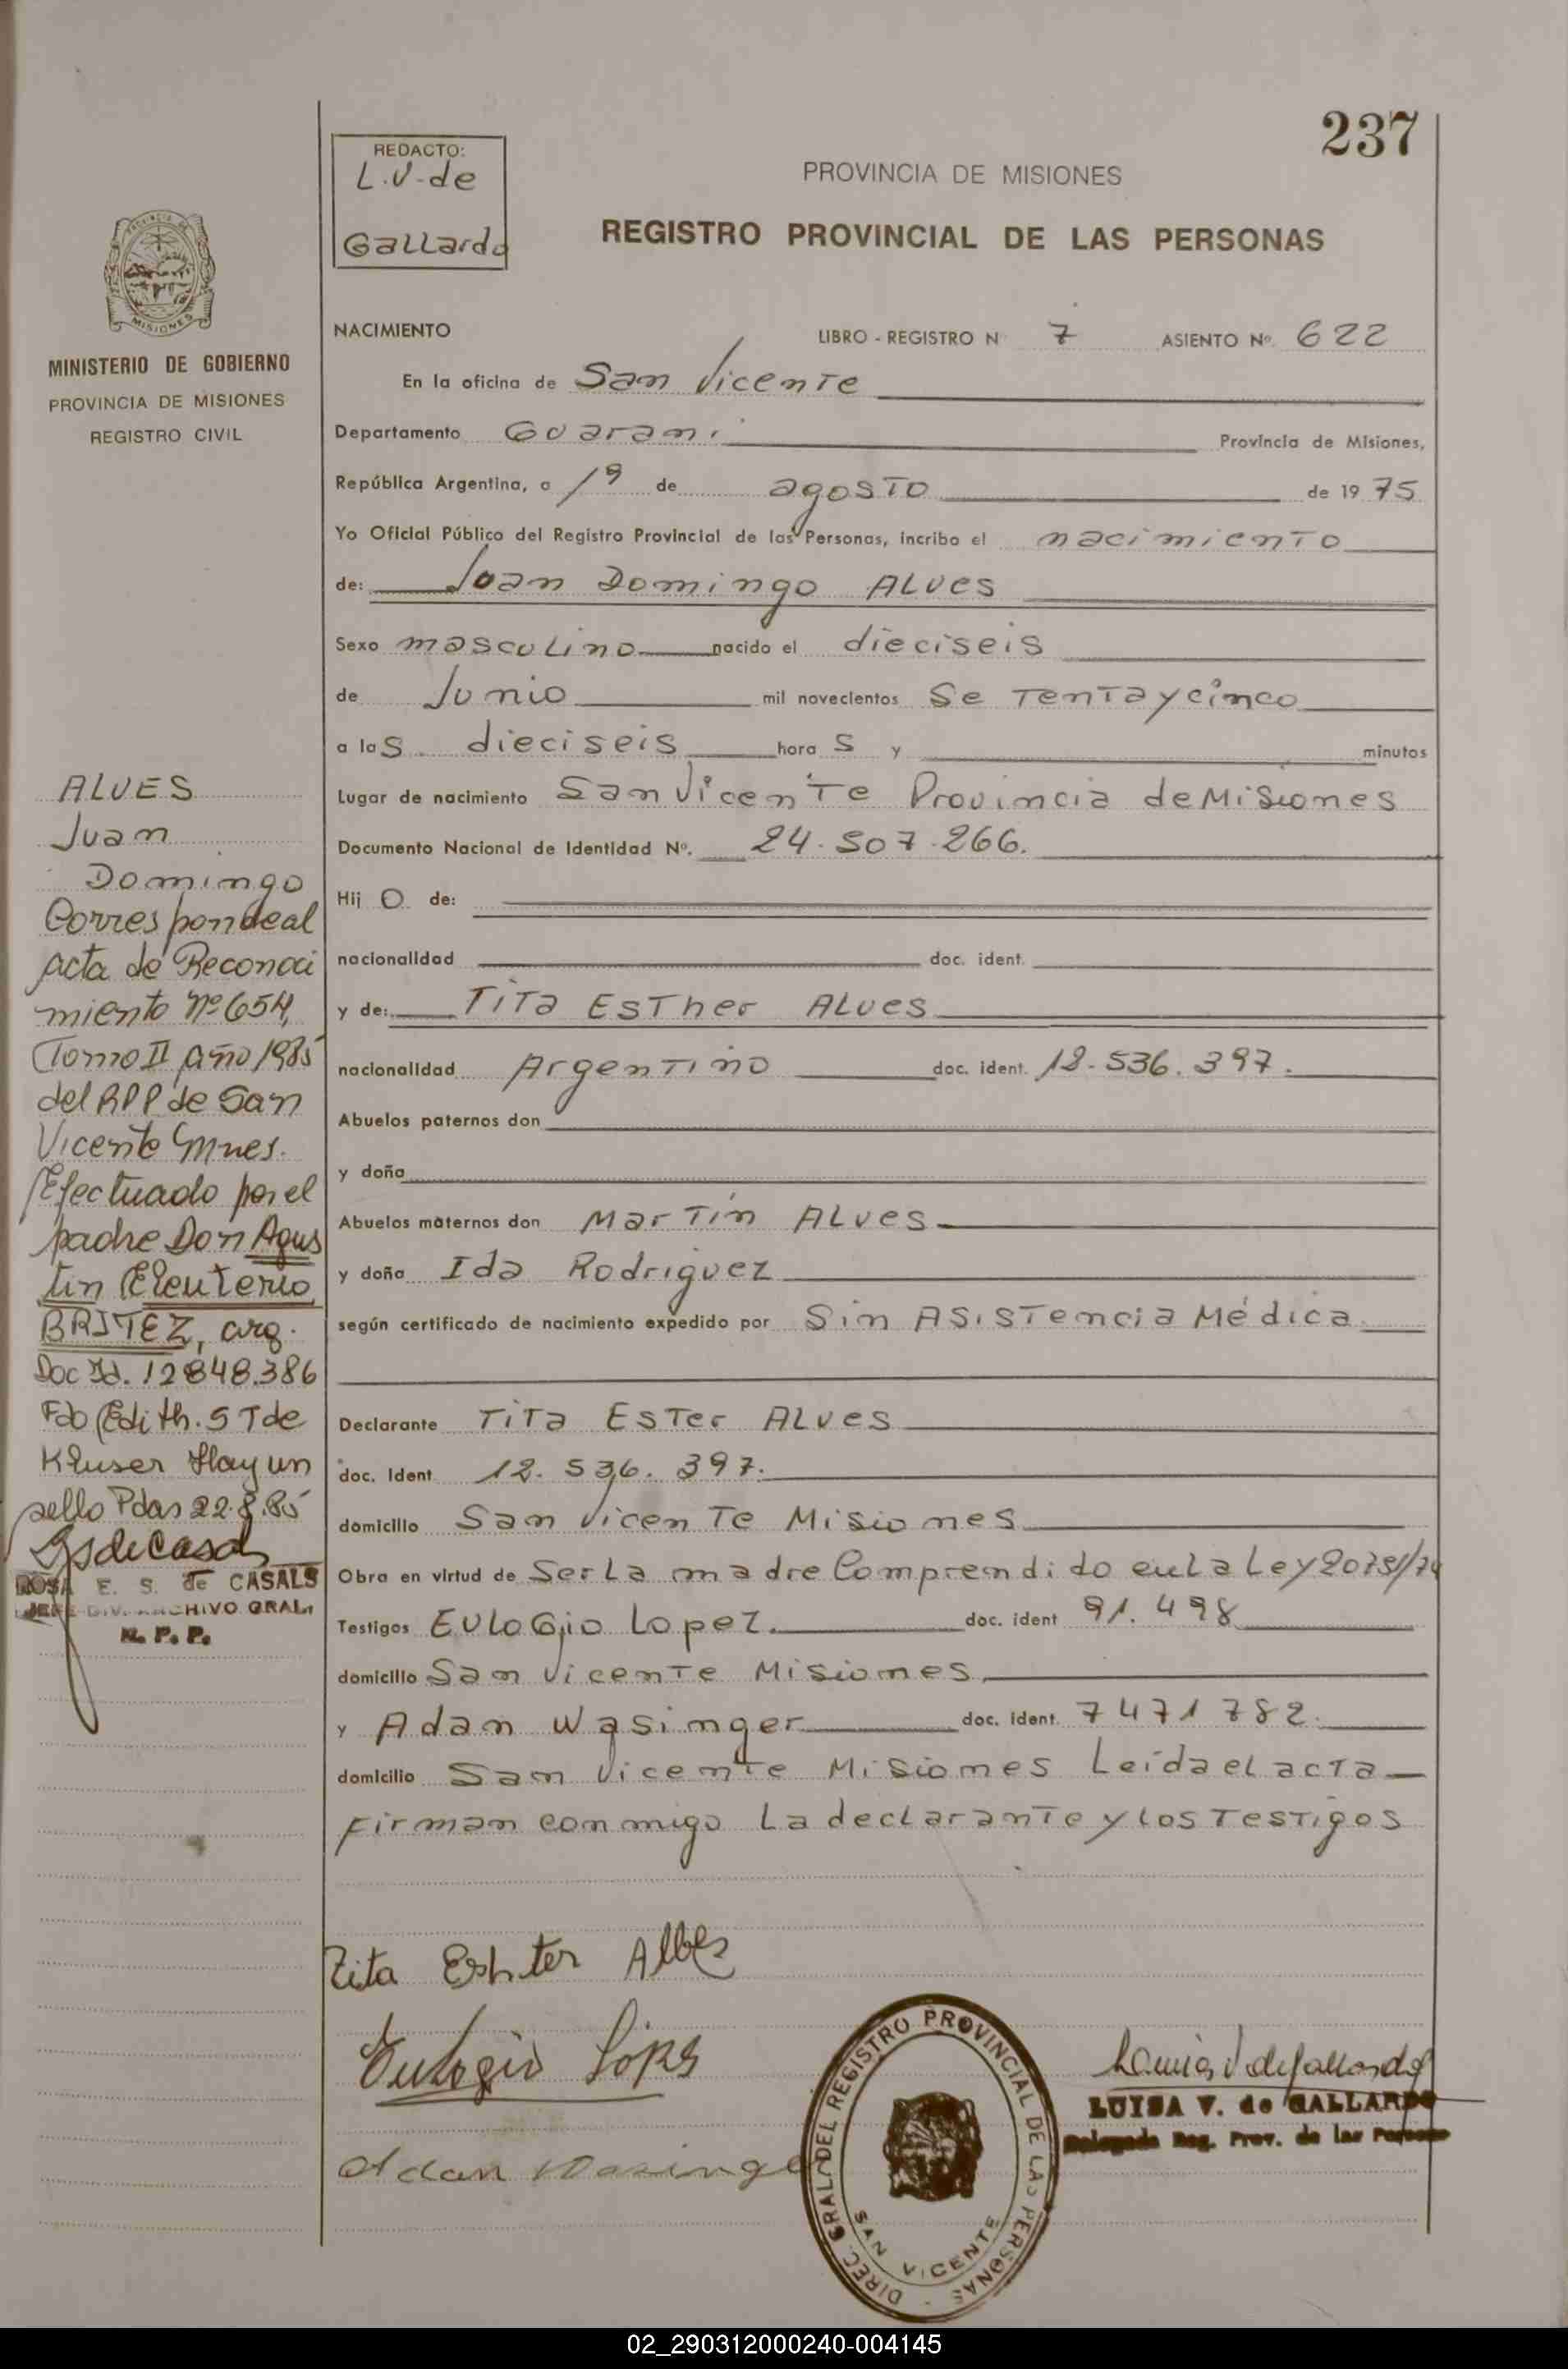 237
REDACTO:
L.V. de
Gallardo
PROVINCIA DE MISIONES
REGISTRO PROVINCIAL DE LAS PERSONAS
MISIONES
MINISTERIO DE GOBIERNO
PROVINCIA DE MISIONES
REGISTRO CIVIL
NACIMIENTO LIBRO - REGISTRO N 7 ASIENTO Nº 622
En la oficina de San Vicente
Departamento Guarani Provincia de Misiones,
República Argentina, a 1º de agosto de 1975
Yo Oficial Público del Registro Provincial de las Personas, incribo el nacimiento
de: Juan Domingo ALVes
Sexo masculino nacido el dieciseis
de Junio mil novecientos Setentaycinco
a las dieciseis horas y minutos
Lugar de nacimiento San Vicente Provincia de Misiones
Documento Nacional de Identidad Nº. 24.507.266.
Hijo de:
nacionalidad doc. ident.
y de: Tita Esther ALves
nacionalidad Argentino doc. ident. 12.536.397.
Abuelos paternos don
y doña
Abuelos maternos don Martín ALves
y doña Ida Rodriguez
según certificado de nacimiento expedido por Sin Asistencia Médica
Declarante Tita Ester ALves
doc. Ident 12.536.397.
domicilio San Vicente Misiones
Obra en virtud de Ser La madre Comprendido en La Ley
Testigos Eulogio Lopez. doc. ident 91.498
domicilio San Vicente Misiones
y Adan Wasinger doc. ident. 7471782.
domicilio San Vicente Misiones Leída el acta
Firman conmigo La declarante y los Testigos
ALVES
Juan
Domingo
Corresponde al
acta de Reconoci
miento Nº 654,
Tomo II año 1985
del RPP de San
Vicente Mnes.
Efectuado por el
padre Don Agus
tin Eleuterio
BRITEZ, arg.
Doc Id. 12848.386
Fdo Edith. S T de
Kluser Hay un
sello Pdas 22.8.85
ROSA E. S. de CASALS
JEFE DIV. ARCHIVO GRAL.
R. P. P.
Tita Eshter Albes
Eulogio Lopes
Adan Wasinge
DIREC. GRAL. DEL REGISTRO PROVINCIAL DE LAS PERSONAS
SAN VICENTE
LUISA V. de GALLARDO
Delegada Reg. Prov. de las Personas
02_290312000240-004145